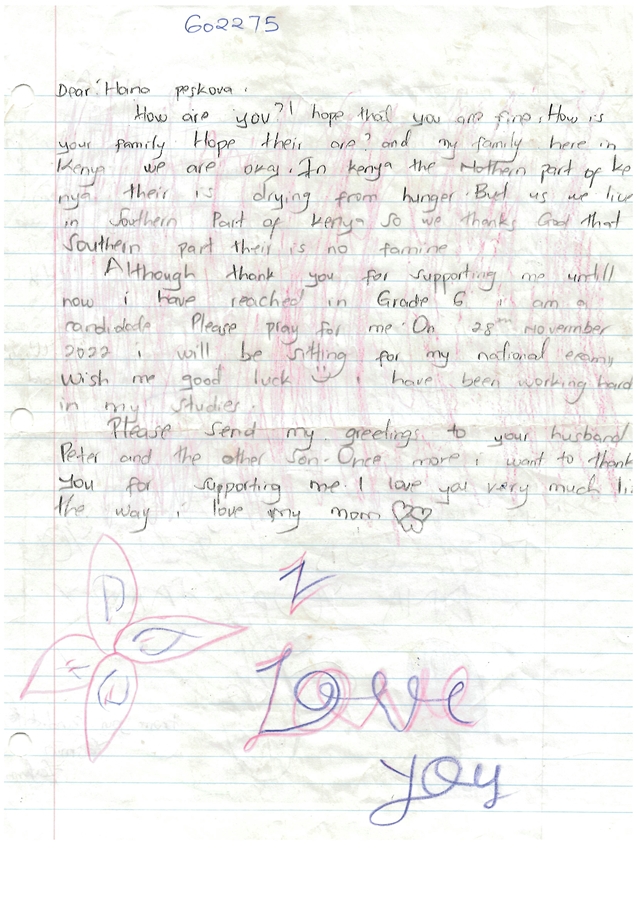 G02275
Dear Hana peskova.
How are you?I hope that you are fine. How is
your family Hope their are? and my family here in
Kenya we are okay. In kenya the Nothern part of ke
nya their is drying from hunger. But us we live
in Southern Part of kenya so we thanks God that
Southern part their is no famine
Although thank you for supporting me untill
now i have reached in Grade 6 i am a
candidade Please pray for me. On 28th November
2022 i will be sitting for my national exams
wish me good luck i have been working hard
in my studies.
Please send my greetings to your husband
Peter and the other son. Once more i want to thank
you for supporting me. I love you very much li
the way i love my mom
I
Love
you